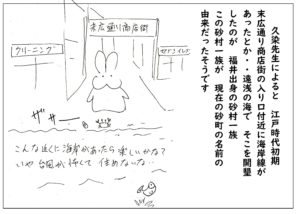 久染先生によると　江戸時代初期
末広通り商店街の入り口付近に海岸線が
あったとか・・遠浅の海で　そこを開墾
したのが　福井出身の砂村一族
この砂村一族が　現在の砂町の名前の
由来だったそうです
末広通り商店街
クリーニング
ザザー
こんな近くに海岸があったら楽しいかな？
いや台風が怖くて住めないな…